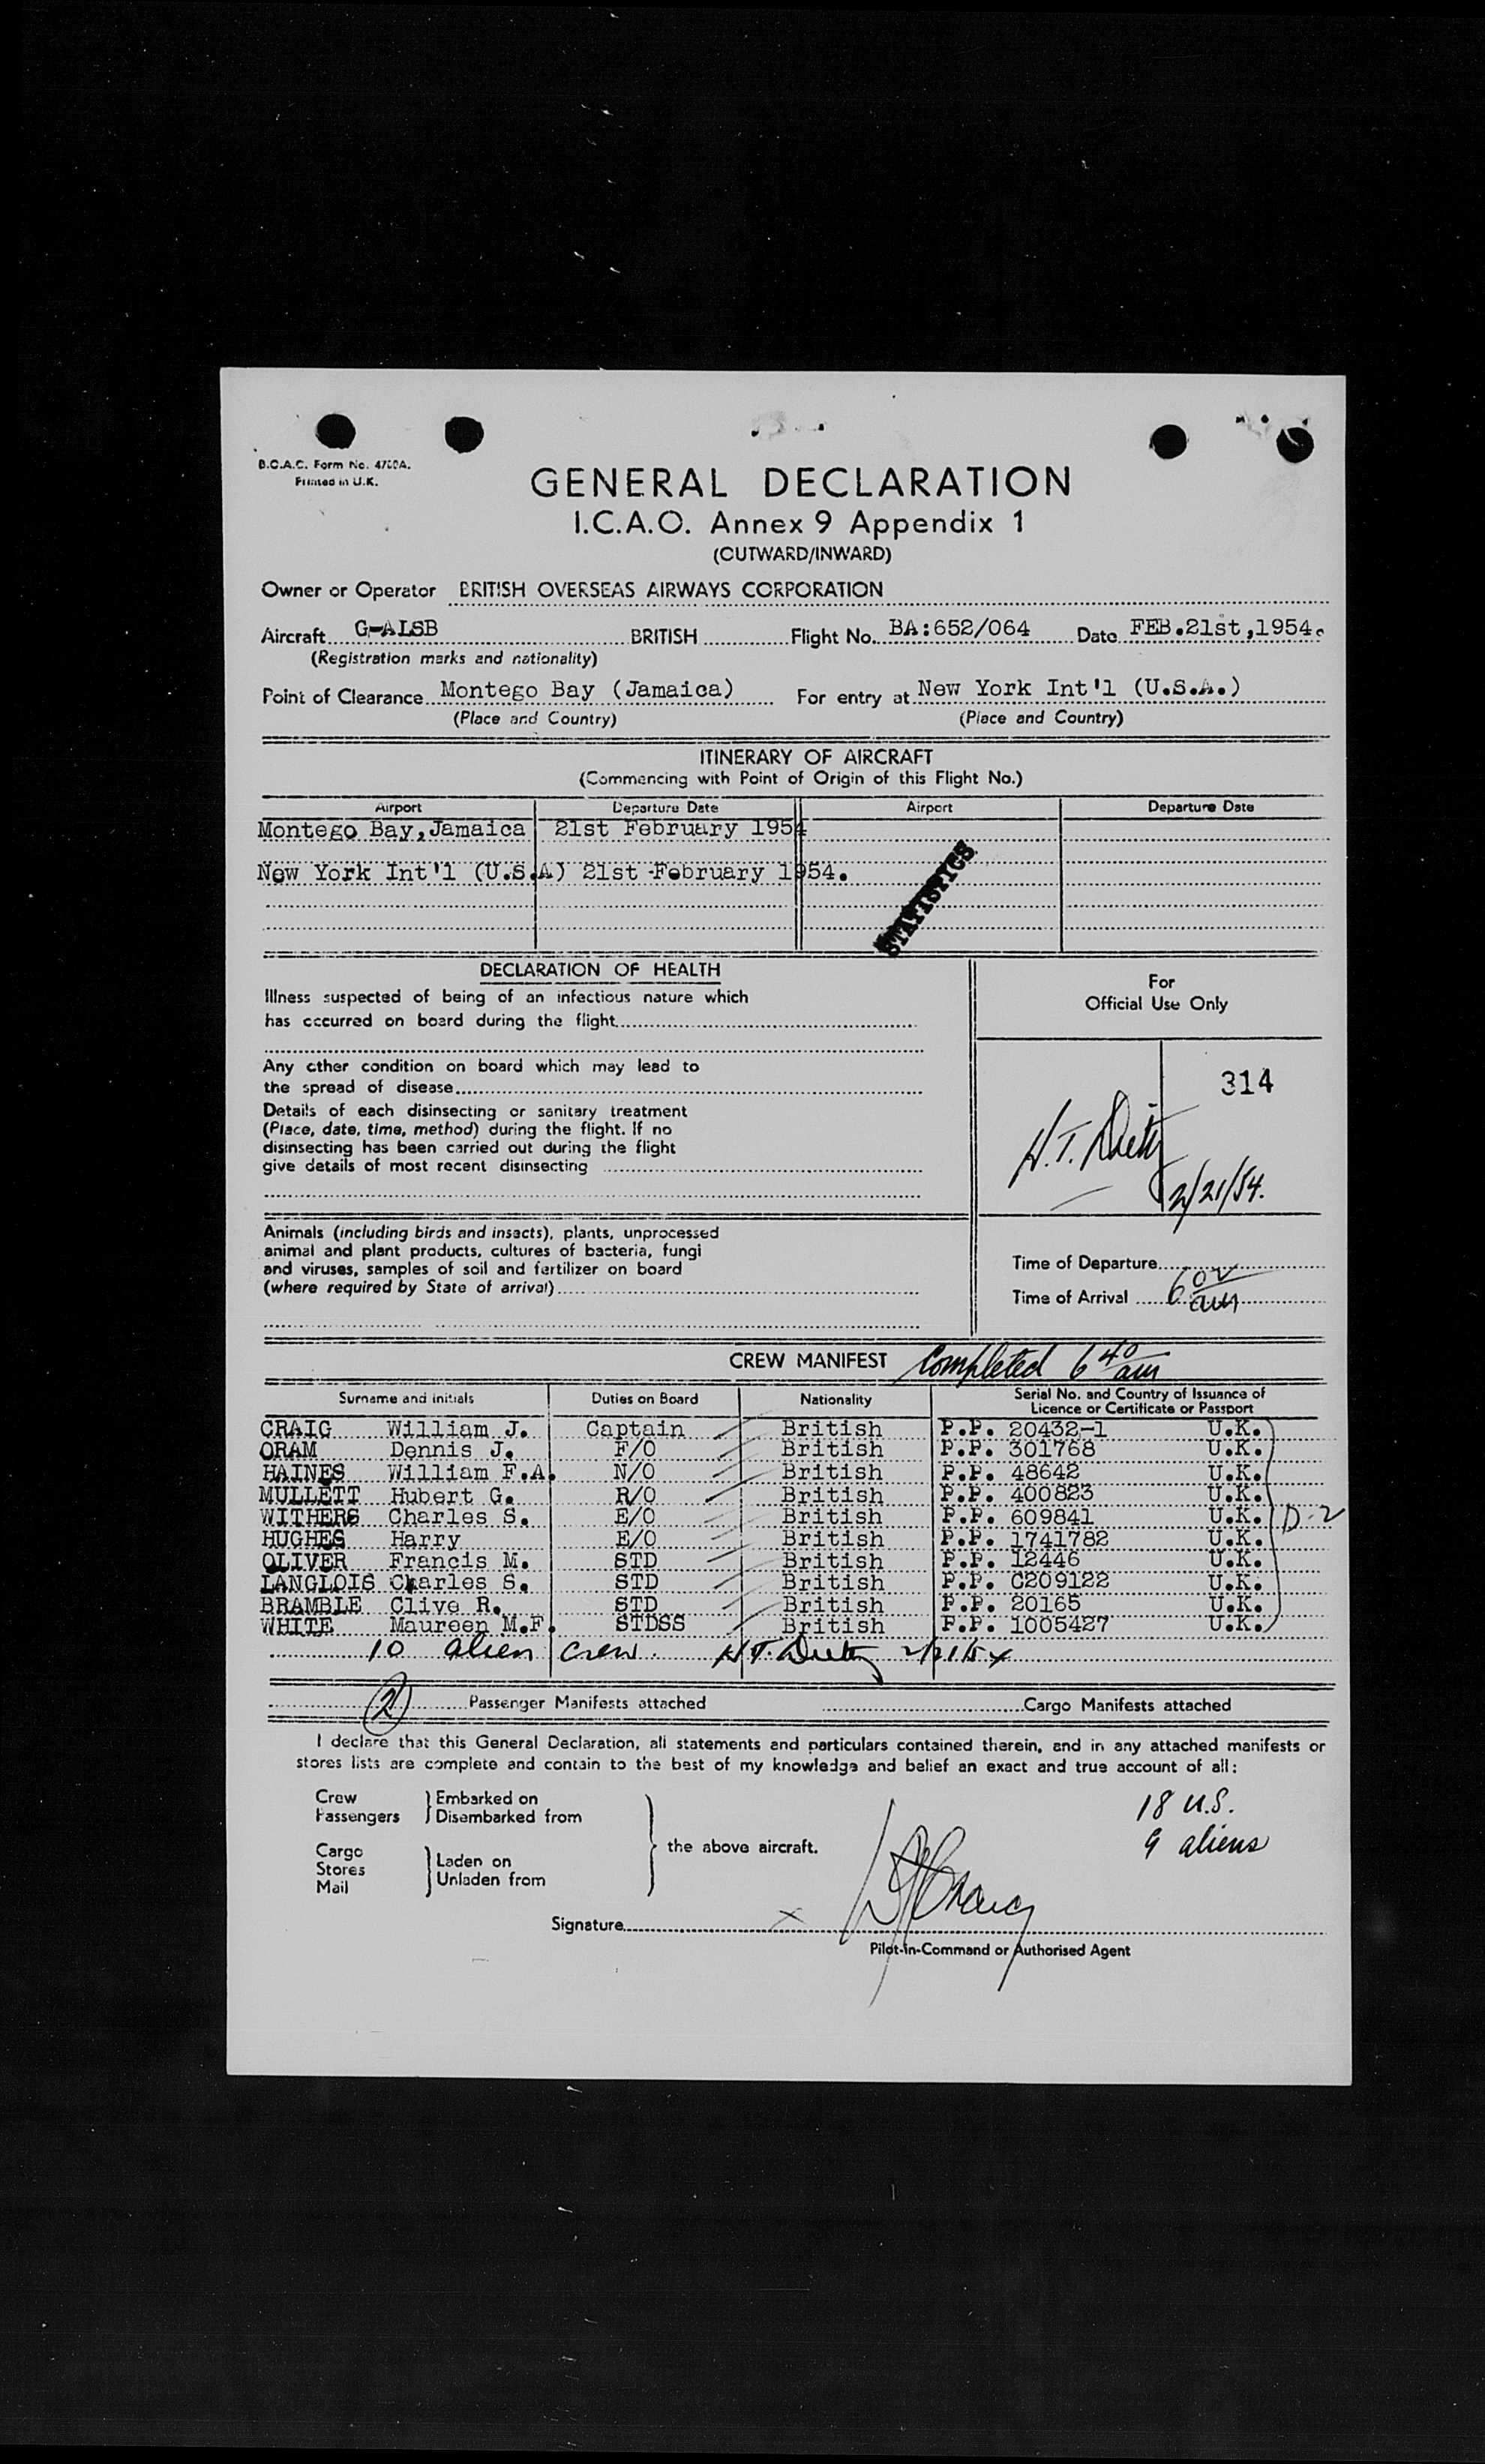 B.O.A.C. Form No. 4700A.
Printed in U.K.
GENERAL DECLARATION
I.C.A.O. Annex 9 Appendix 1
(OUTWARD/INWARD)
Owner or Operator BRITISH OVERSEAS AIRWAYS CORPORATION
Aircraft G-ALSB BRITISH Flight No. BA:652/064 Date FEB.21st,1954.
(Registration marks and nationality)
Point of Clearance Montego Bay (Jamaica) For entry at New York Int'l (U.S.A.)
(Place and Country) (Place and Country)
ITINERARY OF AIRCRAFT
(Commencing with Point of Origin of this Flight No.)
Airport Departure Date Airport Departure Date
Montego Bay,Jamaica 21st February 1954
New York Int'l (U.S.A) 21st February 1954.
STATISTICS
DECLARATION OF HEALTH
Illness suspected of being of an infectious nature which
has occurred on board during the flight
Any other condition on board which may lead to
the spread of disease
Details of each disinsecting or sanitary treatment
(Place, date, time, method) during the flight. If no
disinsecting has been carried out during the flight
give details of most recent disinsecting
Animals (including birds and insects), plants, unprocessed
animal and plant products, cultures of bacteria, fungi
and viruses, samples of soil and fertilizer on board
(where required by State of arrival)
For
Official Use Only
314
H.T. Dietz
2/21/54.
Time of Departure
Time of Arrival 6 02 am
CREW MANIFEST Completed 6 40 am
Surname and initials Duties on Board Nationality Serial No. and Country of Issuance of
Licence or Certificate or Passport
CRAIG William J. Captain British P.P. 20432-1 U.K.
ORAM Dennis J. F/O British P.P. 301768 U.K.
HAINES William F.A. N/O British P.P. 48642 U.K.
MULLETT Hubert G. R/O British P.P. 400823 U.K.
WITHERS Charles S. E/O British P.P. 609841 U.K. D-2
HUGHES Harry E/O British P.P. 1741782 U.K.
OLIVER Francis M. STD British P.P. 12446 U.K.
LANGLOIS Charles S. STD British P.P. C209122 U.K.
BRAMBLE Clive R. STD British P.P. 20165 U.K.
WHITE Maureen M.F. STDSS British P.P. 1005427 U.K.
10 alien crew. H.T. Dietz 2/21/54
2 Passenger Manifests attached Cargo Manifests attached
I declare that this General Declaration, all statements and particulars contained therein, and in any attached manifests or
stores lists are complete and contain to the best of my knowledge and belief an exact and true account of all:
Crew Embarked on
Passengers Disembarked from
Cargo
Stores Laden on
Mail Unladen from
the above aircraft.
18 U.S.
9 aliens
Signature x
Pilot-in-Command or Authorised Agent